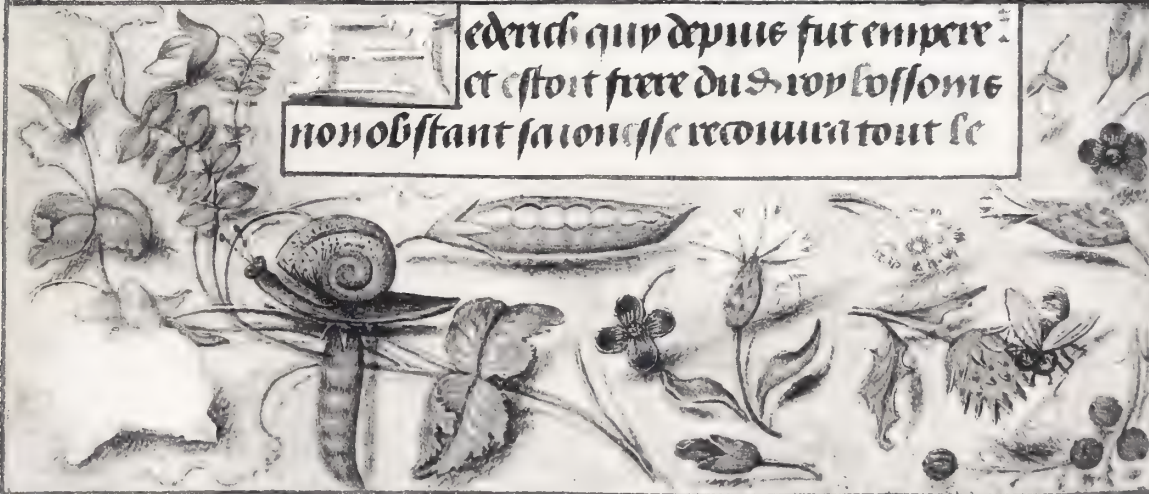 ederich quy depuis fut empere
et estoit frere du d roy lossoms
nonobstant sa ionesse recouura tout le